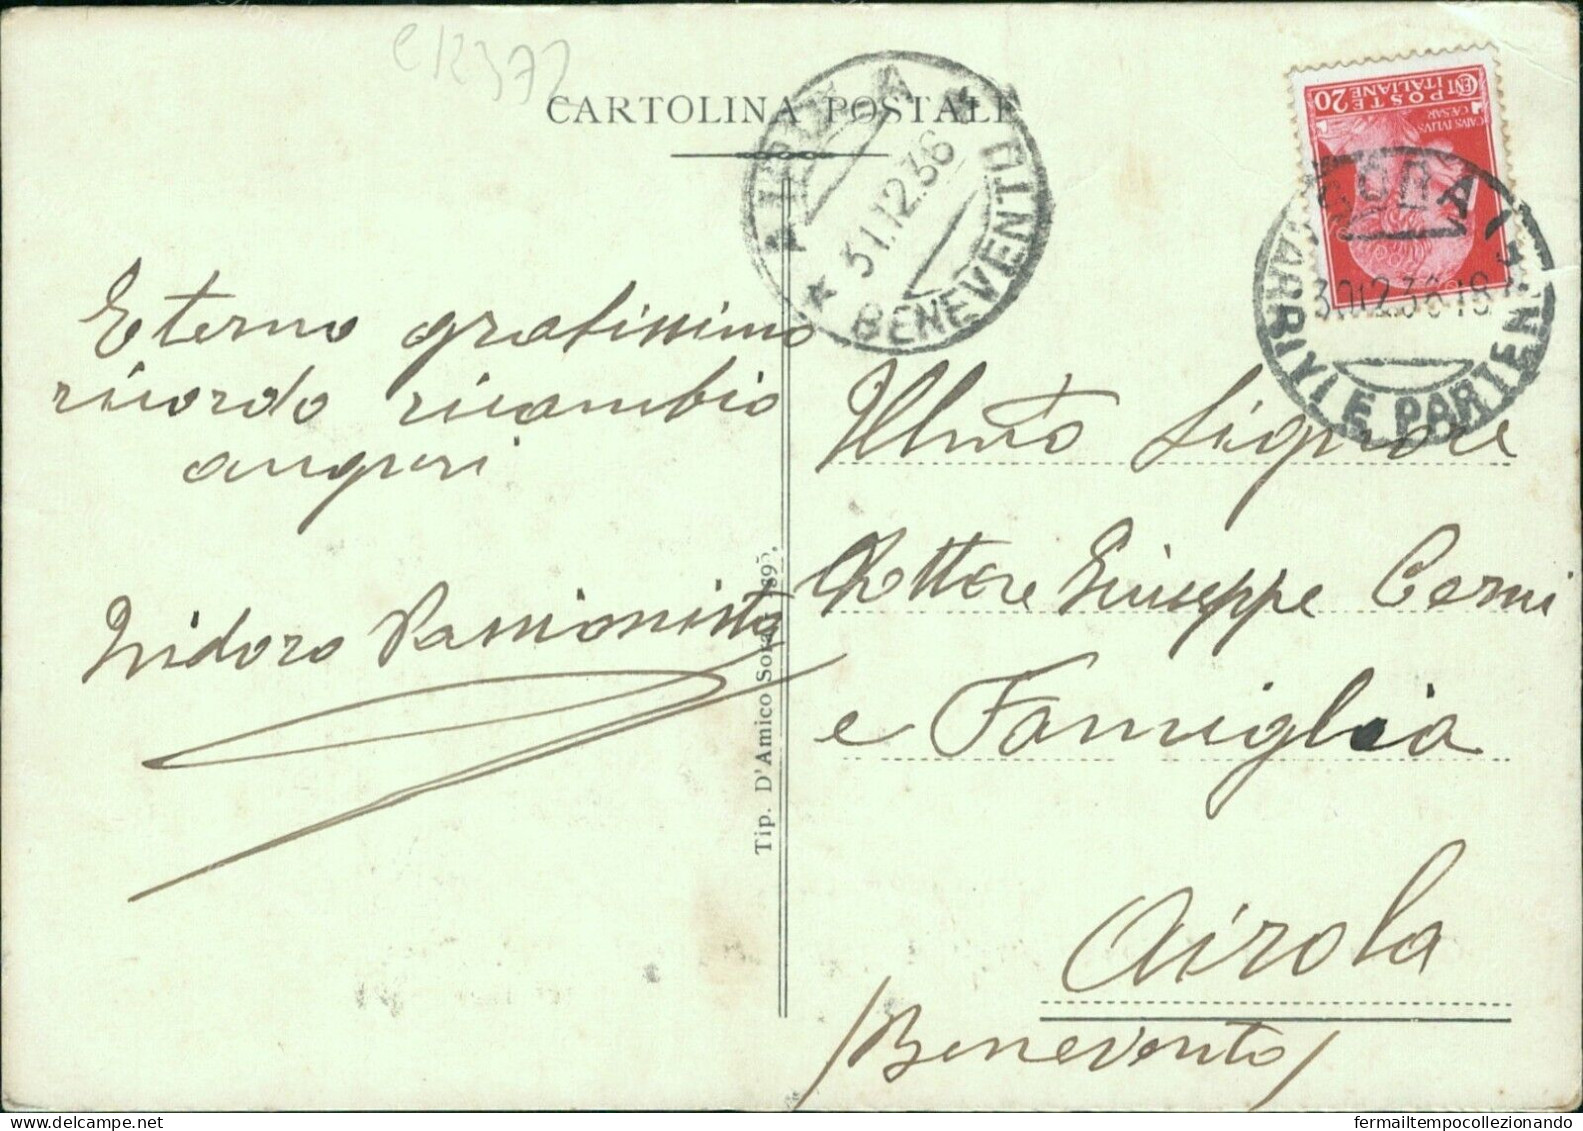 e12372
CARTOLINA POSTALE
AIROLA
31.12.36
BENEVENTO
CENT 20
POSTE ITALIANE
CAIVS IVLIVS
CAESAR
SORA
30.12.36.18
ARRIVI E PARTENZ
Eterno gratissimo
ricordo ricambio
auguri
Isidoro Passionista
Tip. D'Amico Sora
Illmo Signore
Dottore Giuseppe Cerni
e Famiglia
Airola
(Benevento)
delcampe.net
fermailtempocollezionando